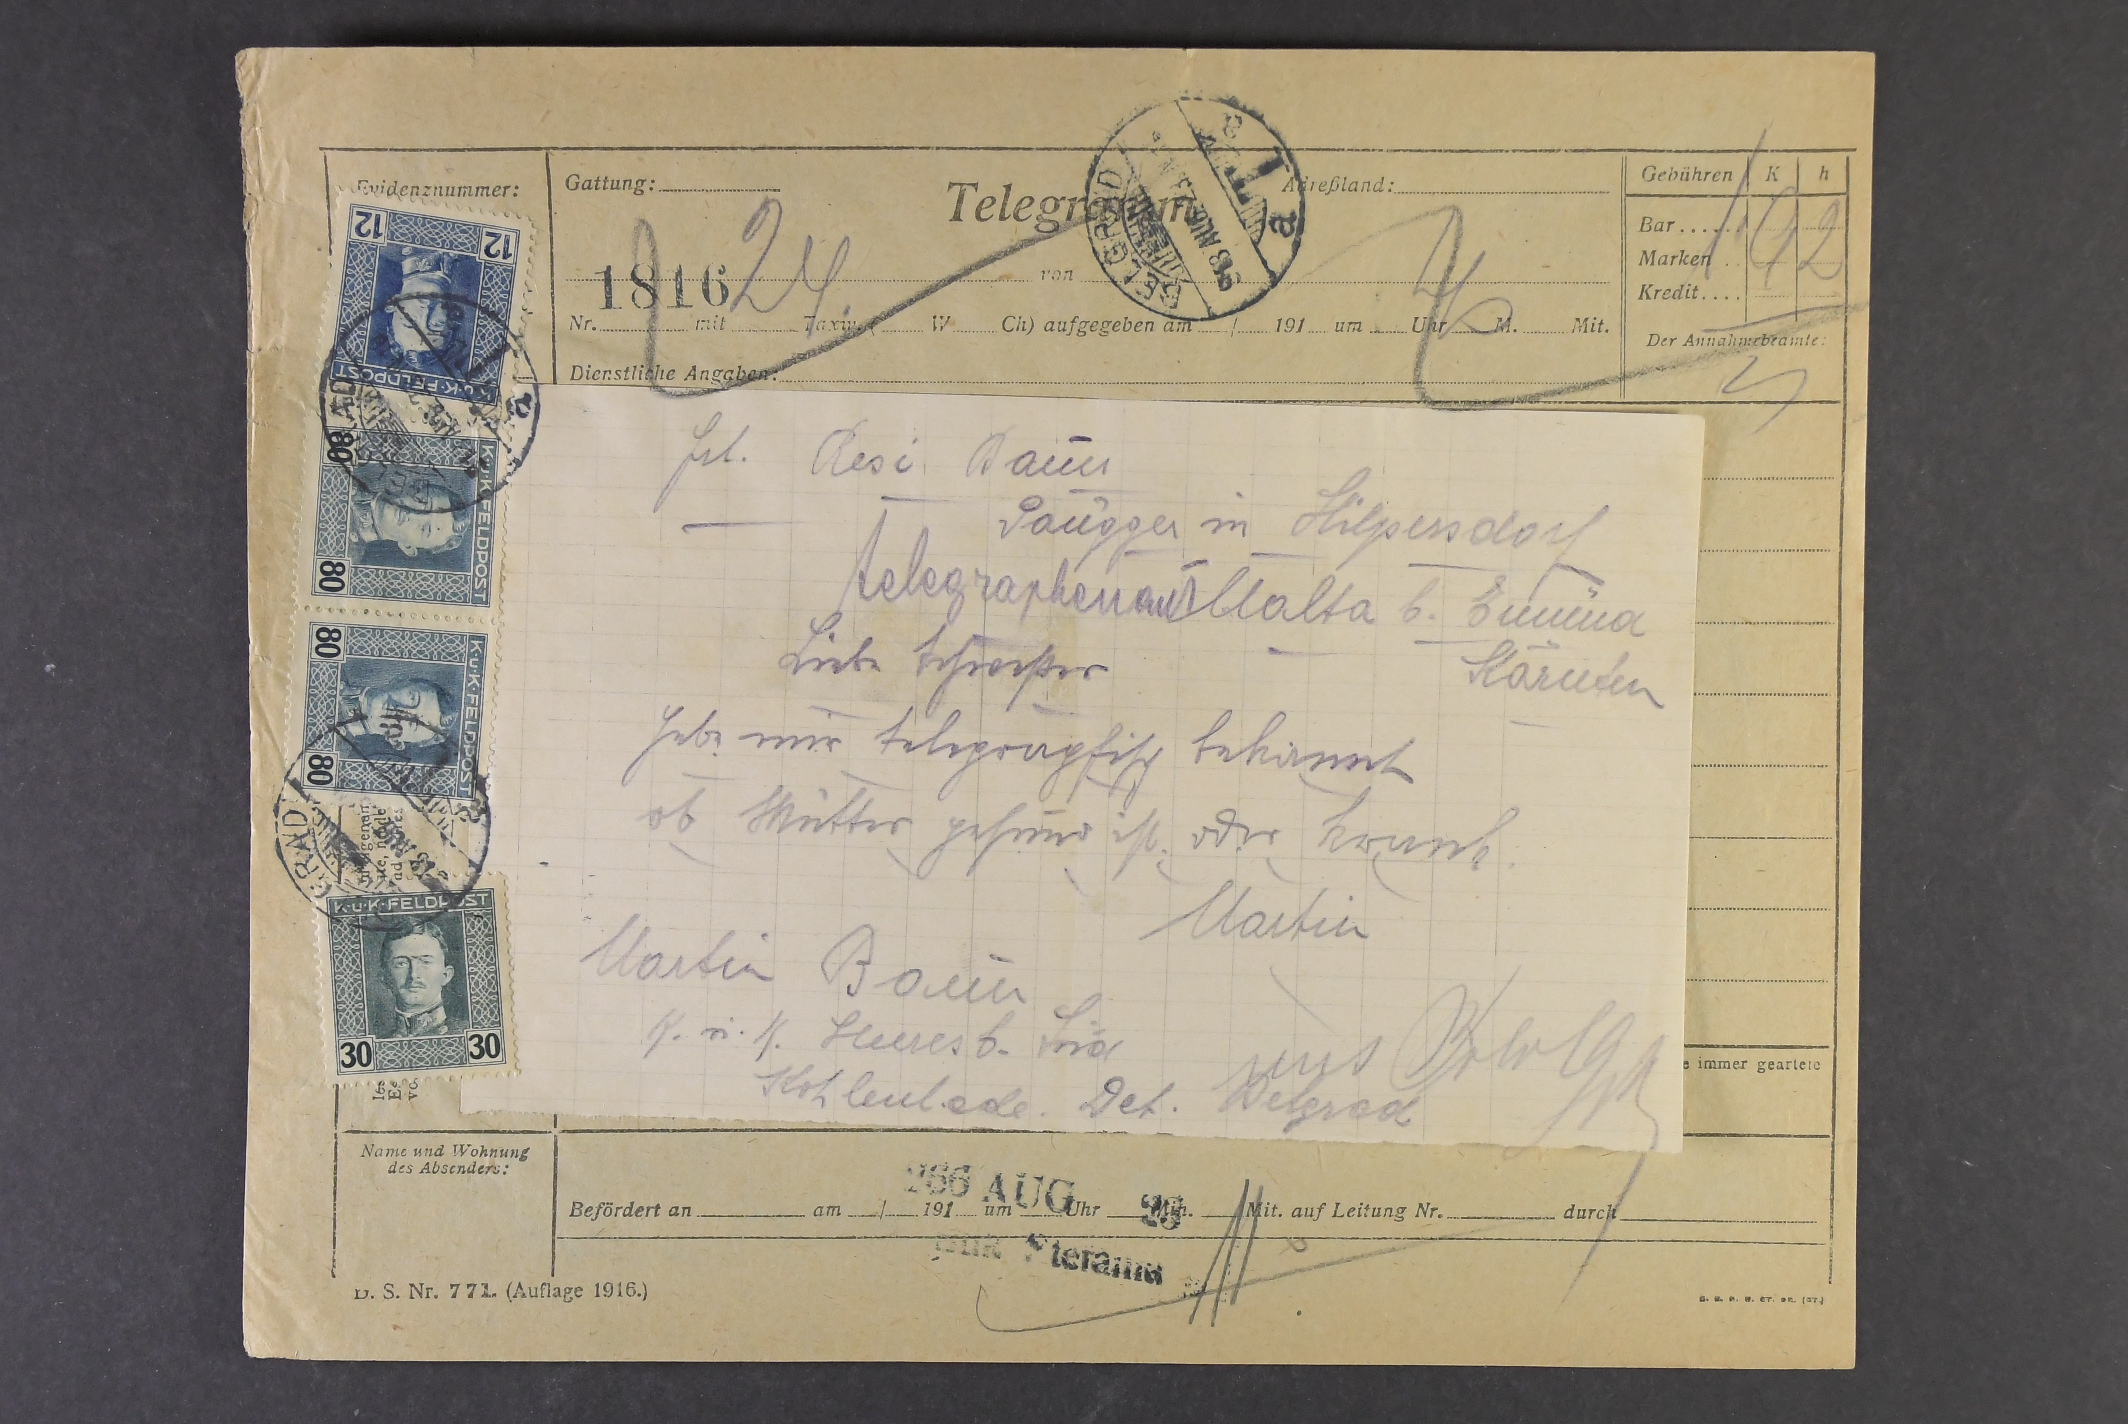 Evidenznummer:
Gattung:
Telegramm
Adreßland:
Gebühren K h
Bar
Marken
Kredit
1 42
Der Annahmebeamte:
1816 24.
von
Nr. mit Taxw. ( W Ch) aufgegeben am / 191 um Uhr M. Mit.
Dienstliche Angaben:
BELGRAD
1 a
12 12
K.u.K. FELDPOST
80 80
K.u.K. FELDPOST
80 80
K.u.K. FELDPOST
GRAD
K.u.K. FELDPOST
30 30
Frl. Resi Baur
in Hilpersdorf
telegraphenamt Malta b. Gmünd
Kärnten
Liebe Schwester
Gebe mir telegraphisch bekannt
ob Mutter gesund ist, oder krank.
Martin
Martin Baur
K. u. K. Heeresb. Süd
Kohlenlade. Det. Belgrad
e immer geartete
Name und Wohnung
des Absenders:
Befördert an am / 191 um Uhr Min. Mit. auf Leitung Nr. durch
AUG
D. S. Nr. 771. (Auflage 1916.)